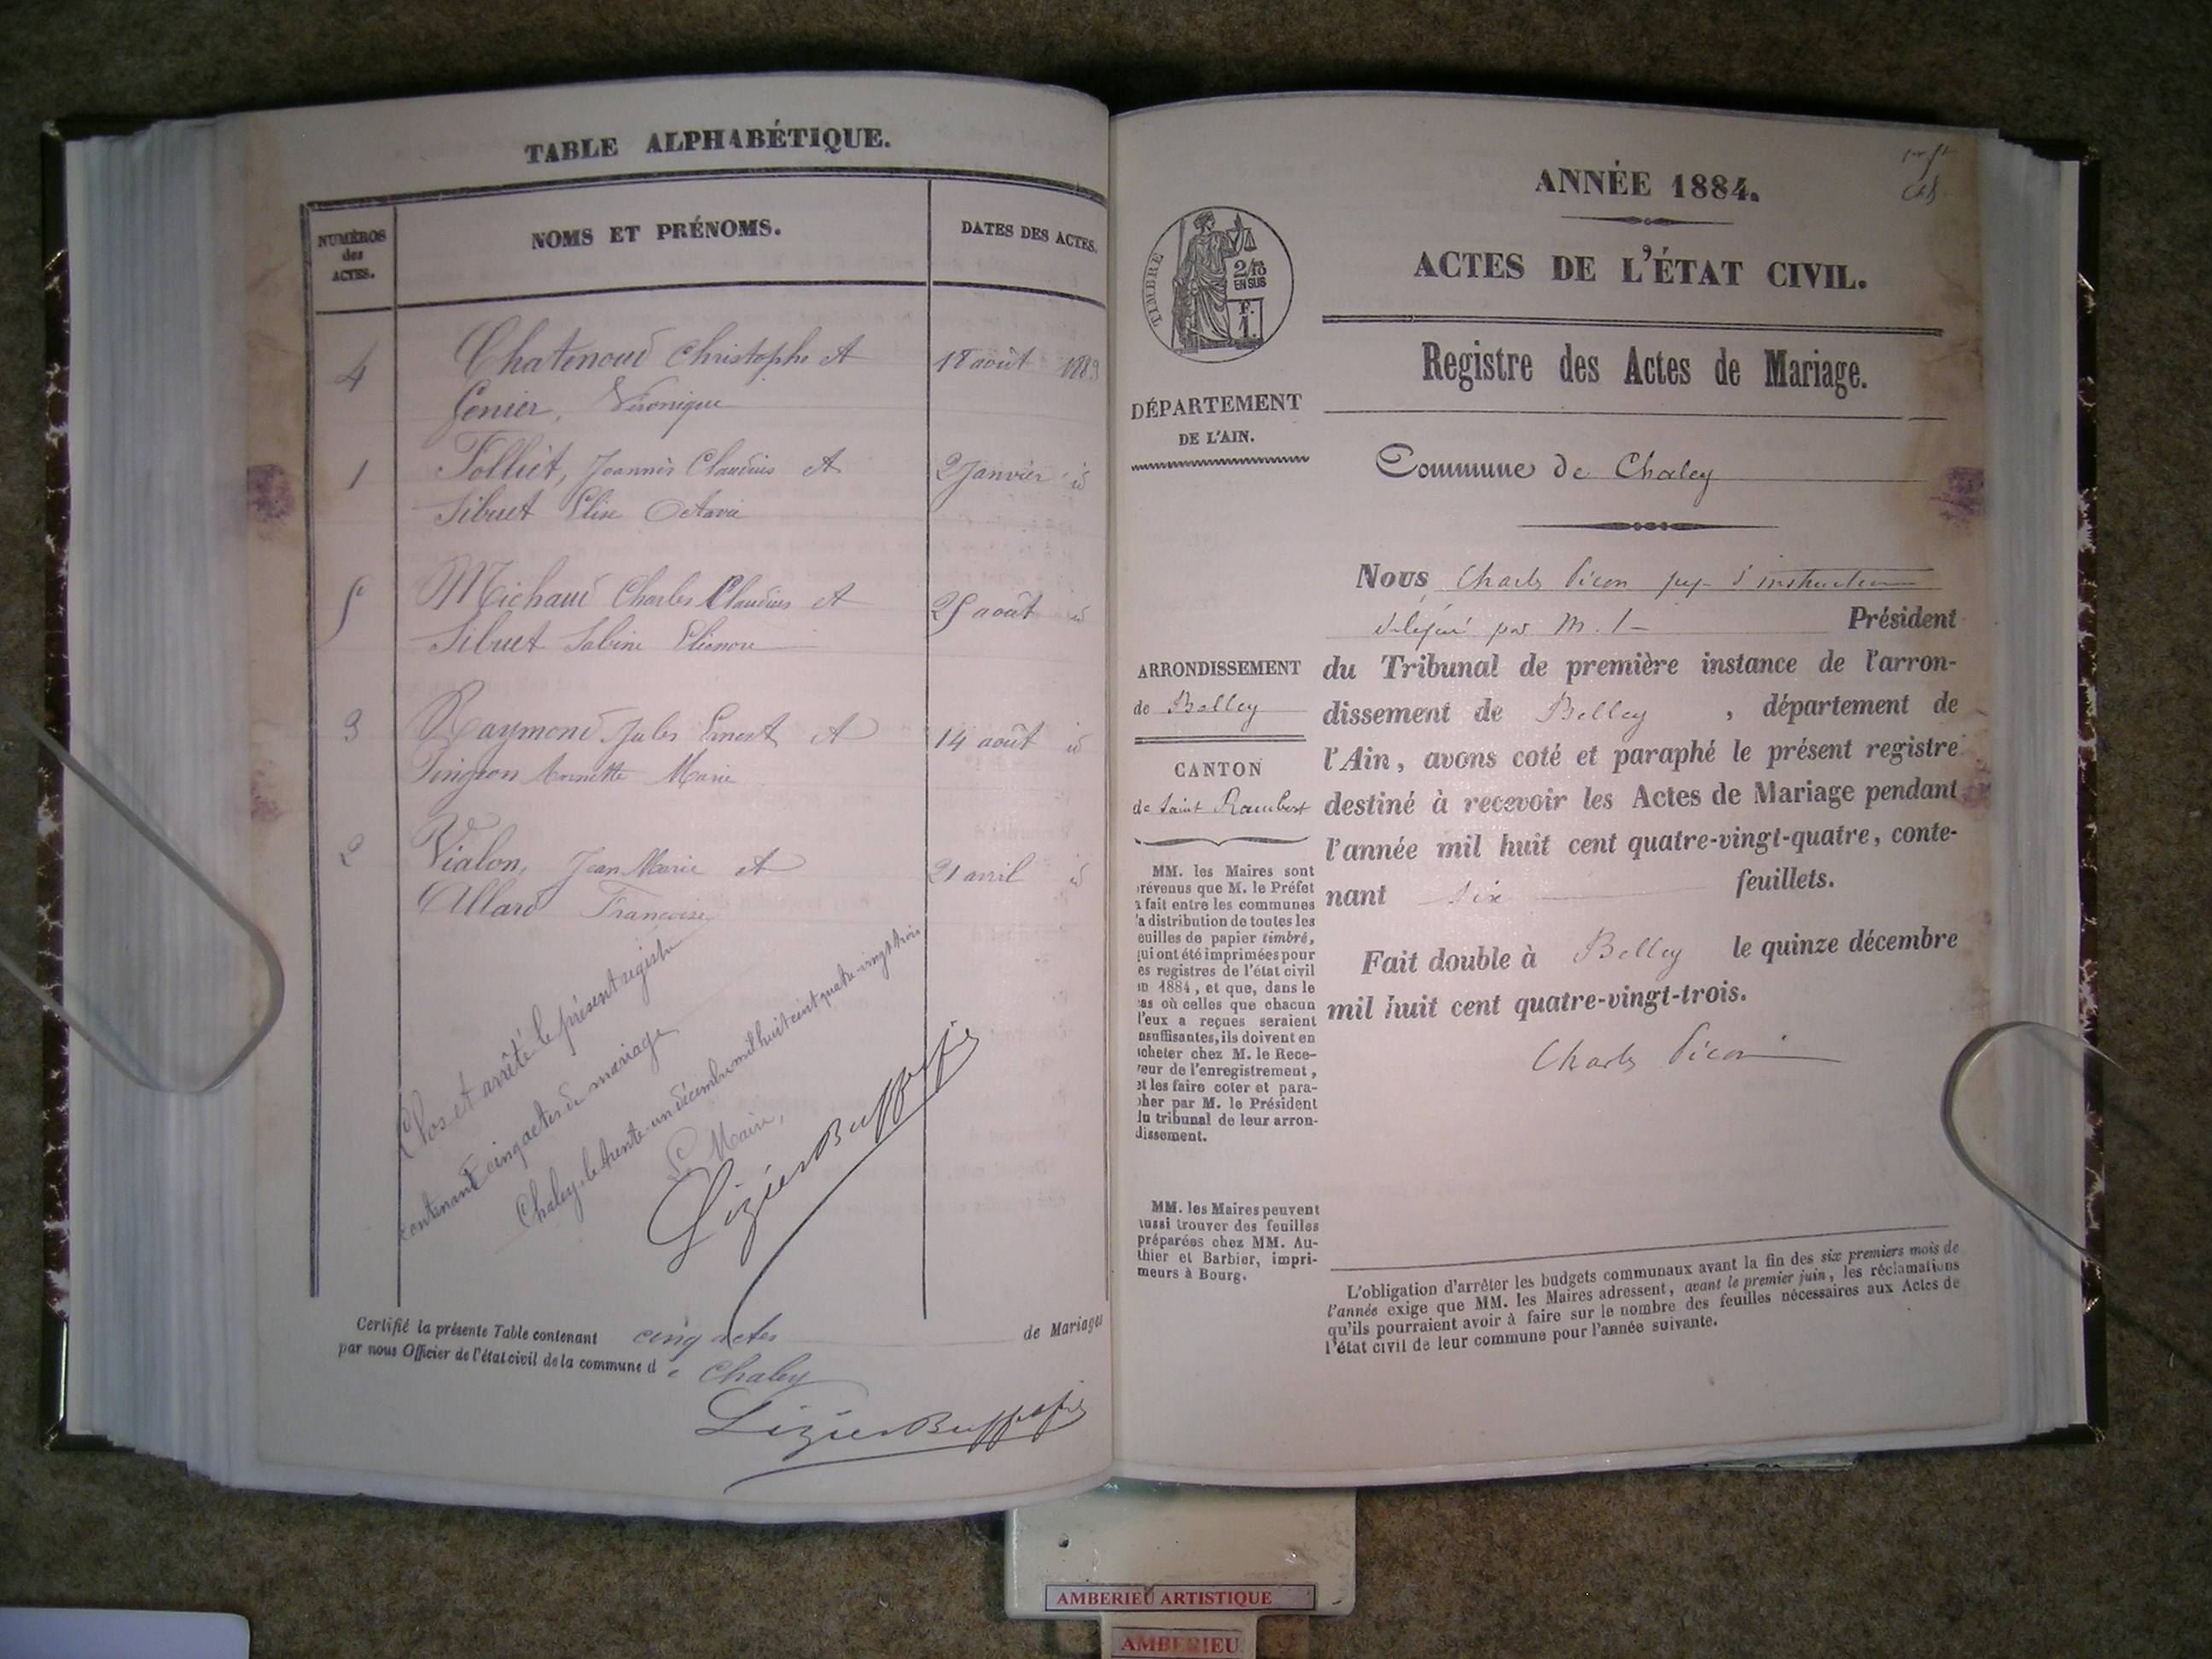 TABLE ALPHABÉTIQUE.
NUMÉROS
des
ACTES.
NOMS ET PRÉNOMS.
DATES DES ACTES.
4
Chatenoud Christophe et
18 août 1883
Genier, Véronique
1
Tolliet, Joannès Claudius et
2 Janvier id
Sibuet Elise Octavie
5
Michaud Charles Claudius et
25 août id
Sibuet Sabine Eléonore
3
Raymond Jules Ernest et
14 août id
Pingeon Annette Marie
2
Vialon, Jean Marie et
21 avril id
Allard Françoise
Clos et arrêté le présent registre
contenant cinq actes de mariage
Chaley, le trente-un décembre mil huit cent quatre-vingt trois
Le Maire,
Certifié la présente Table contenant cinq actes de Mariages
par nous Officier de l'état civil de la commune de Chaley
ANNÉE 1884.
ACTES DE L'ÉTAT CIVIL.
TIMBRE
2/10
EN SUS
F.
1.
Registre des Actes de Mariage.
DÉPARTEMENT
DE L'AIN.
Commune de Chaley
Nous Charles Picon juge d'instruction
délégué par M. le Président
du Tribunal de première instance de l'arron-
dissement de Belley, département de
l'Ain, avons coté et paraphé le présent registre
destiné à recevoir les Actes de Mariage pendant
l'année mil huit cent quatre-vingt-quatre, conte-
nant six feuillets.
Fait double à Belley le quinze décembre
mil huit cent quatre-vingt-trois.
Charles Picon
ARRONDISSEMENT
de Belley
CANTON
de Saint Rambert
MM. les Maires sont
prévenus que M. le Préfet
a fait entre les communes
la distribution de toutes les
feuilles de papier timbré,
qui ont été imprimées pour
les registres de l'état civil
en 1884, et que, dans le
cas où celles que chacun
d'eux a reçues seraient
insuffisantes, ils doivent en
acheter chez M. le Rece-
veur de l'enregistrement,
et les faire coter et para-
pher par M. le Président
du tribunal de leur arron-
dissement.
MM. les Maires peuvent
aussi trouver des feuilles
préparées chez MM. Au-
thier et Barbier, impri-
meurs à Bourg.
L'obligation d'arrêter les budgets communaux avant la fin des six premiers mois de
l'année exige que MM. les Maires adressent, avant le premier juin, les réclamations
qu'ils pourraient avoir à faire sur le nombre des feuilles nécessaires aux Actes de
l'état civil de leur commune pour l'année suivante.
AMBERIEU ARTISTIQUE
AMBERIEU